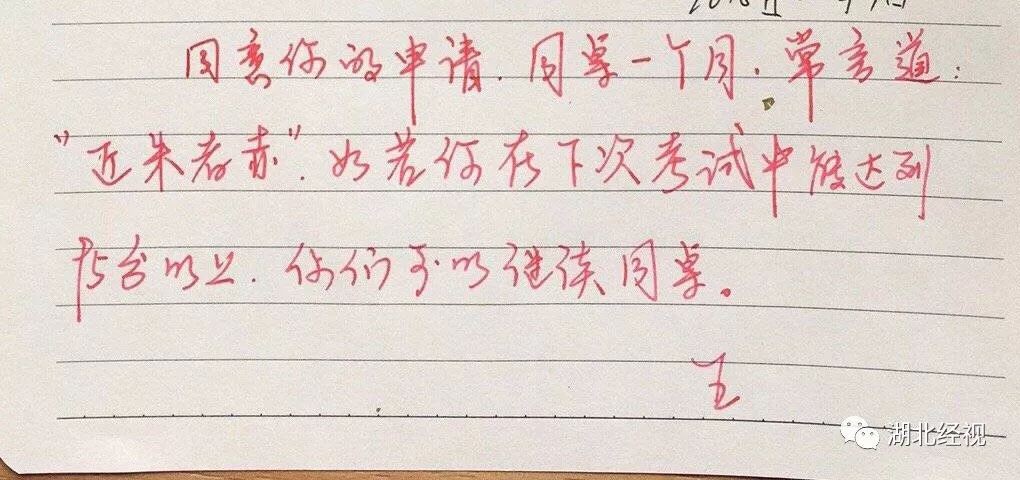 同意你的申请.同桌一个月.常言道:
"近朱者赤".如若你在下次考试中能达到
95分以上.你们可以继续同桌。
王
湖北经视